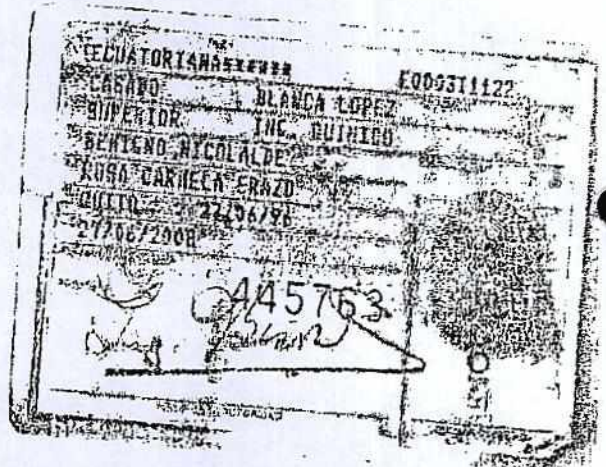 ECUATORIANA****** E0003I1122
CASADO BLANCA LOPEZ
SUPERIOR ING. QUIMICO
BENIGNO NICOLALDE
ROSA CARMELA ERAZO
QUITO 27/06/96
27/06/2008
445763